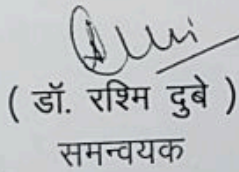 ( डॉ. रश्मि दुबे )
समन्वयक